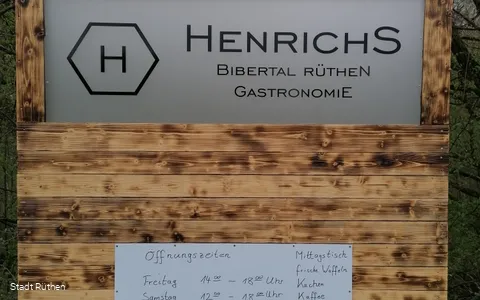 H
HENRICHS
BIBERTAL RÜTHEN
GASTRONOMIE
Öffnungszeiten
Freitag 14 00 – 18 00 Uhr
Samstag 12 00 – 18 00 Uhr
Mittagstisch
frische Waffeln
Kuchen
Kaffee
Stadt Rüthen